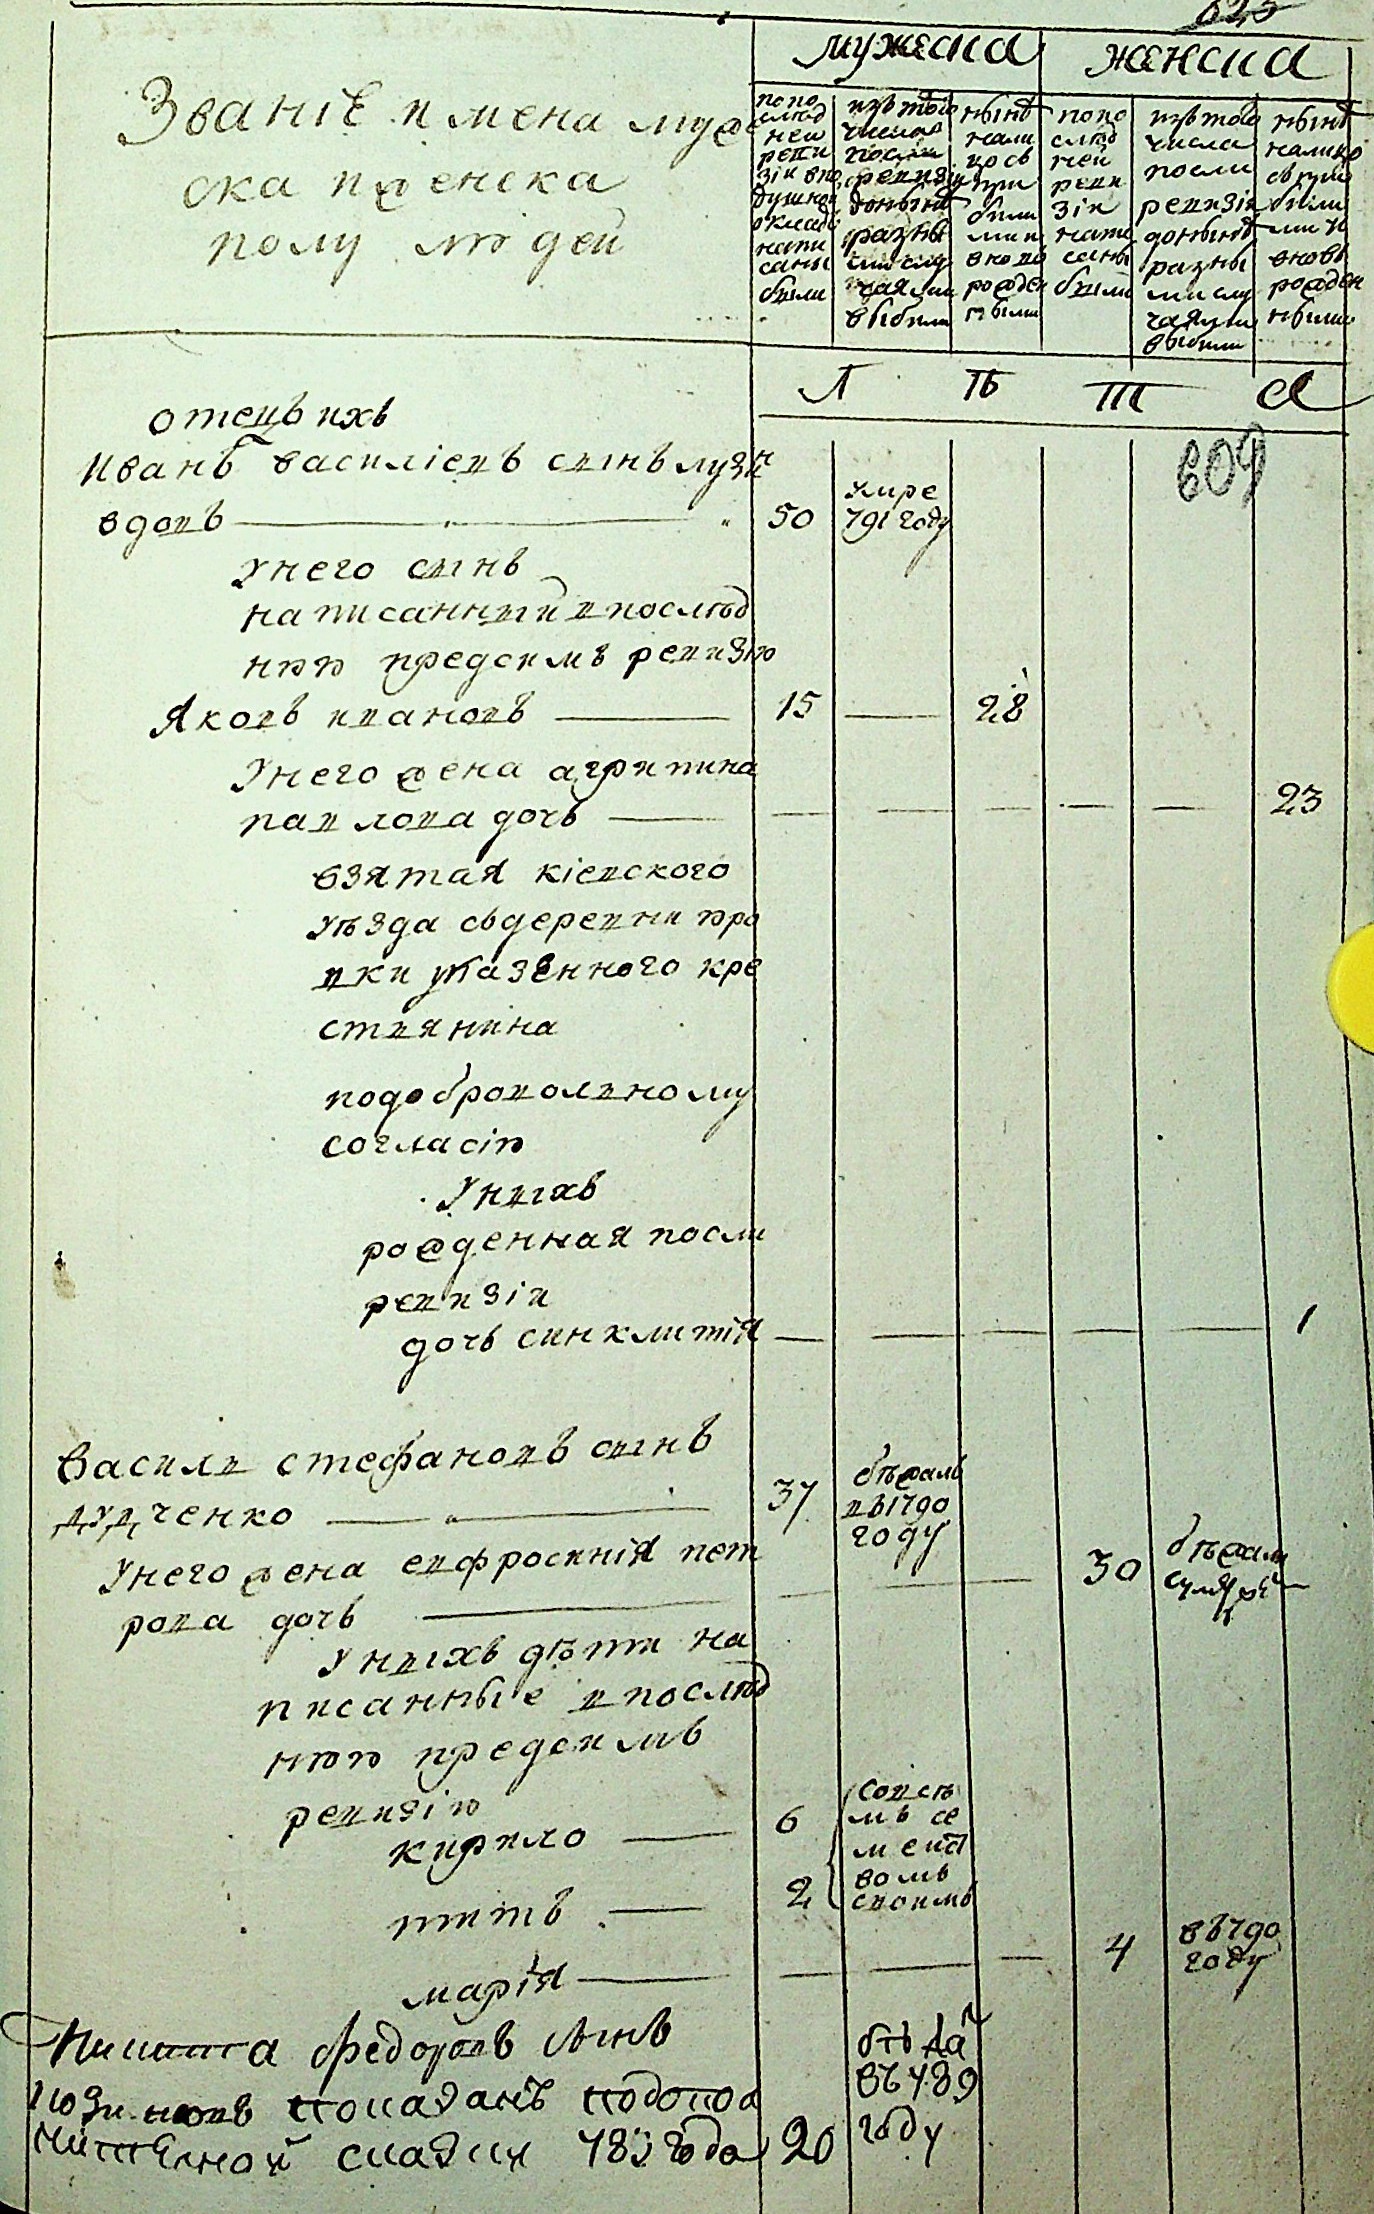 623
мужеска женска
Званіе и имена муже
ска и женска
полу людей
попо
слѣд
ней
реви
зіи впо
душном
окладѣ
напи
саны
были
изътого
числа
после
ревизіи
донынѣ
разны
ми слу
чаями
выбыли
нынѣ
нали
цо съ
при
былы
ми и
вново
рожден
ными
попо
слѣд
ней
реви
зіи
напи
саны
были
изътого
числа
посли
ревизіи
донынѣ
разны
ми слу
чаями
выбыли
нынѣ
налицо
съ при
былы
ми и
вновь
рожден
ными
609
отецъ ихъ
Иванъ василіевъ сынъ
вдовъ 50 умре
791 году
Унего сынъ
написанный впослѣд
нюю предсимъ ревизію
Яковъ ивановъ 15 28
Унего жена агрипина
павлова дочь 23
взятая кіевского
уѣзда съдеревни
казенного кре
стьянина
подоброволному
согласію
Унихъ
рожденная посли
ревизіи
дочь синклитія 1
Василь стефановъ сынъ
дудченко 37 бѣжалъ
въ1790
году
Унего жена евфросинія пет
рова дочь 30 бѣжали
Унихъ дѣти на
писанные впослѣд
нюю предсимъ
ревизію
кирило 6
титъ 2
совсѣ
мъ се
мейст
вомъ
своимъ
марія 4 въ790
году
Никита федоровъ сынъ
показанъ подопол
нителной сказки 783 года 20
бѣжа
въ789
году